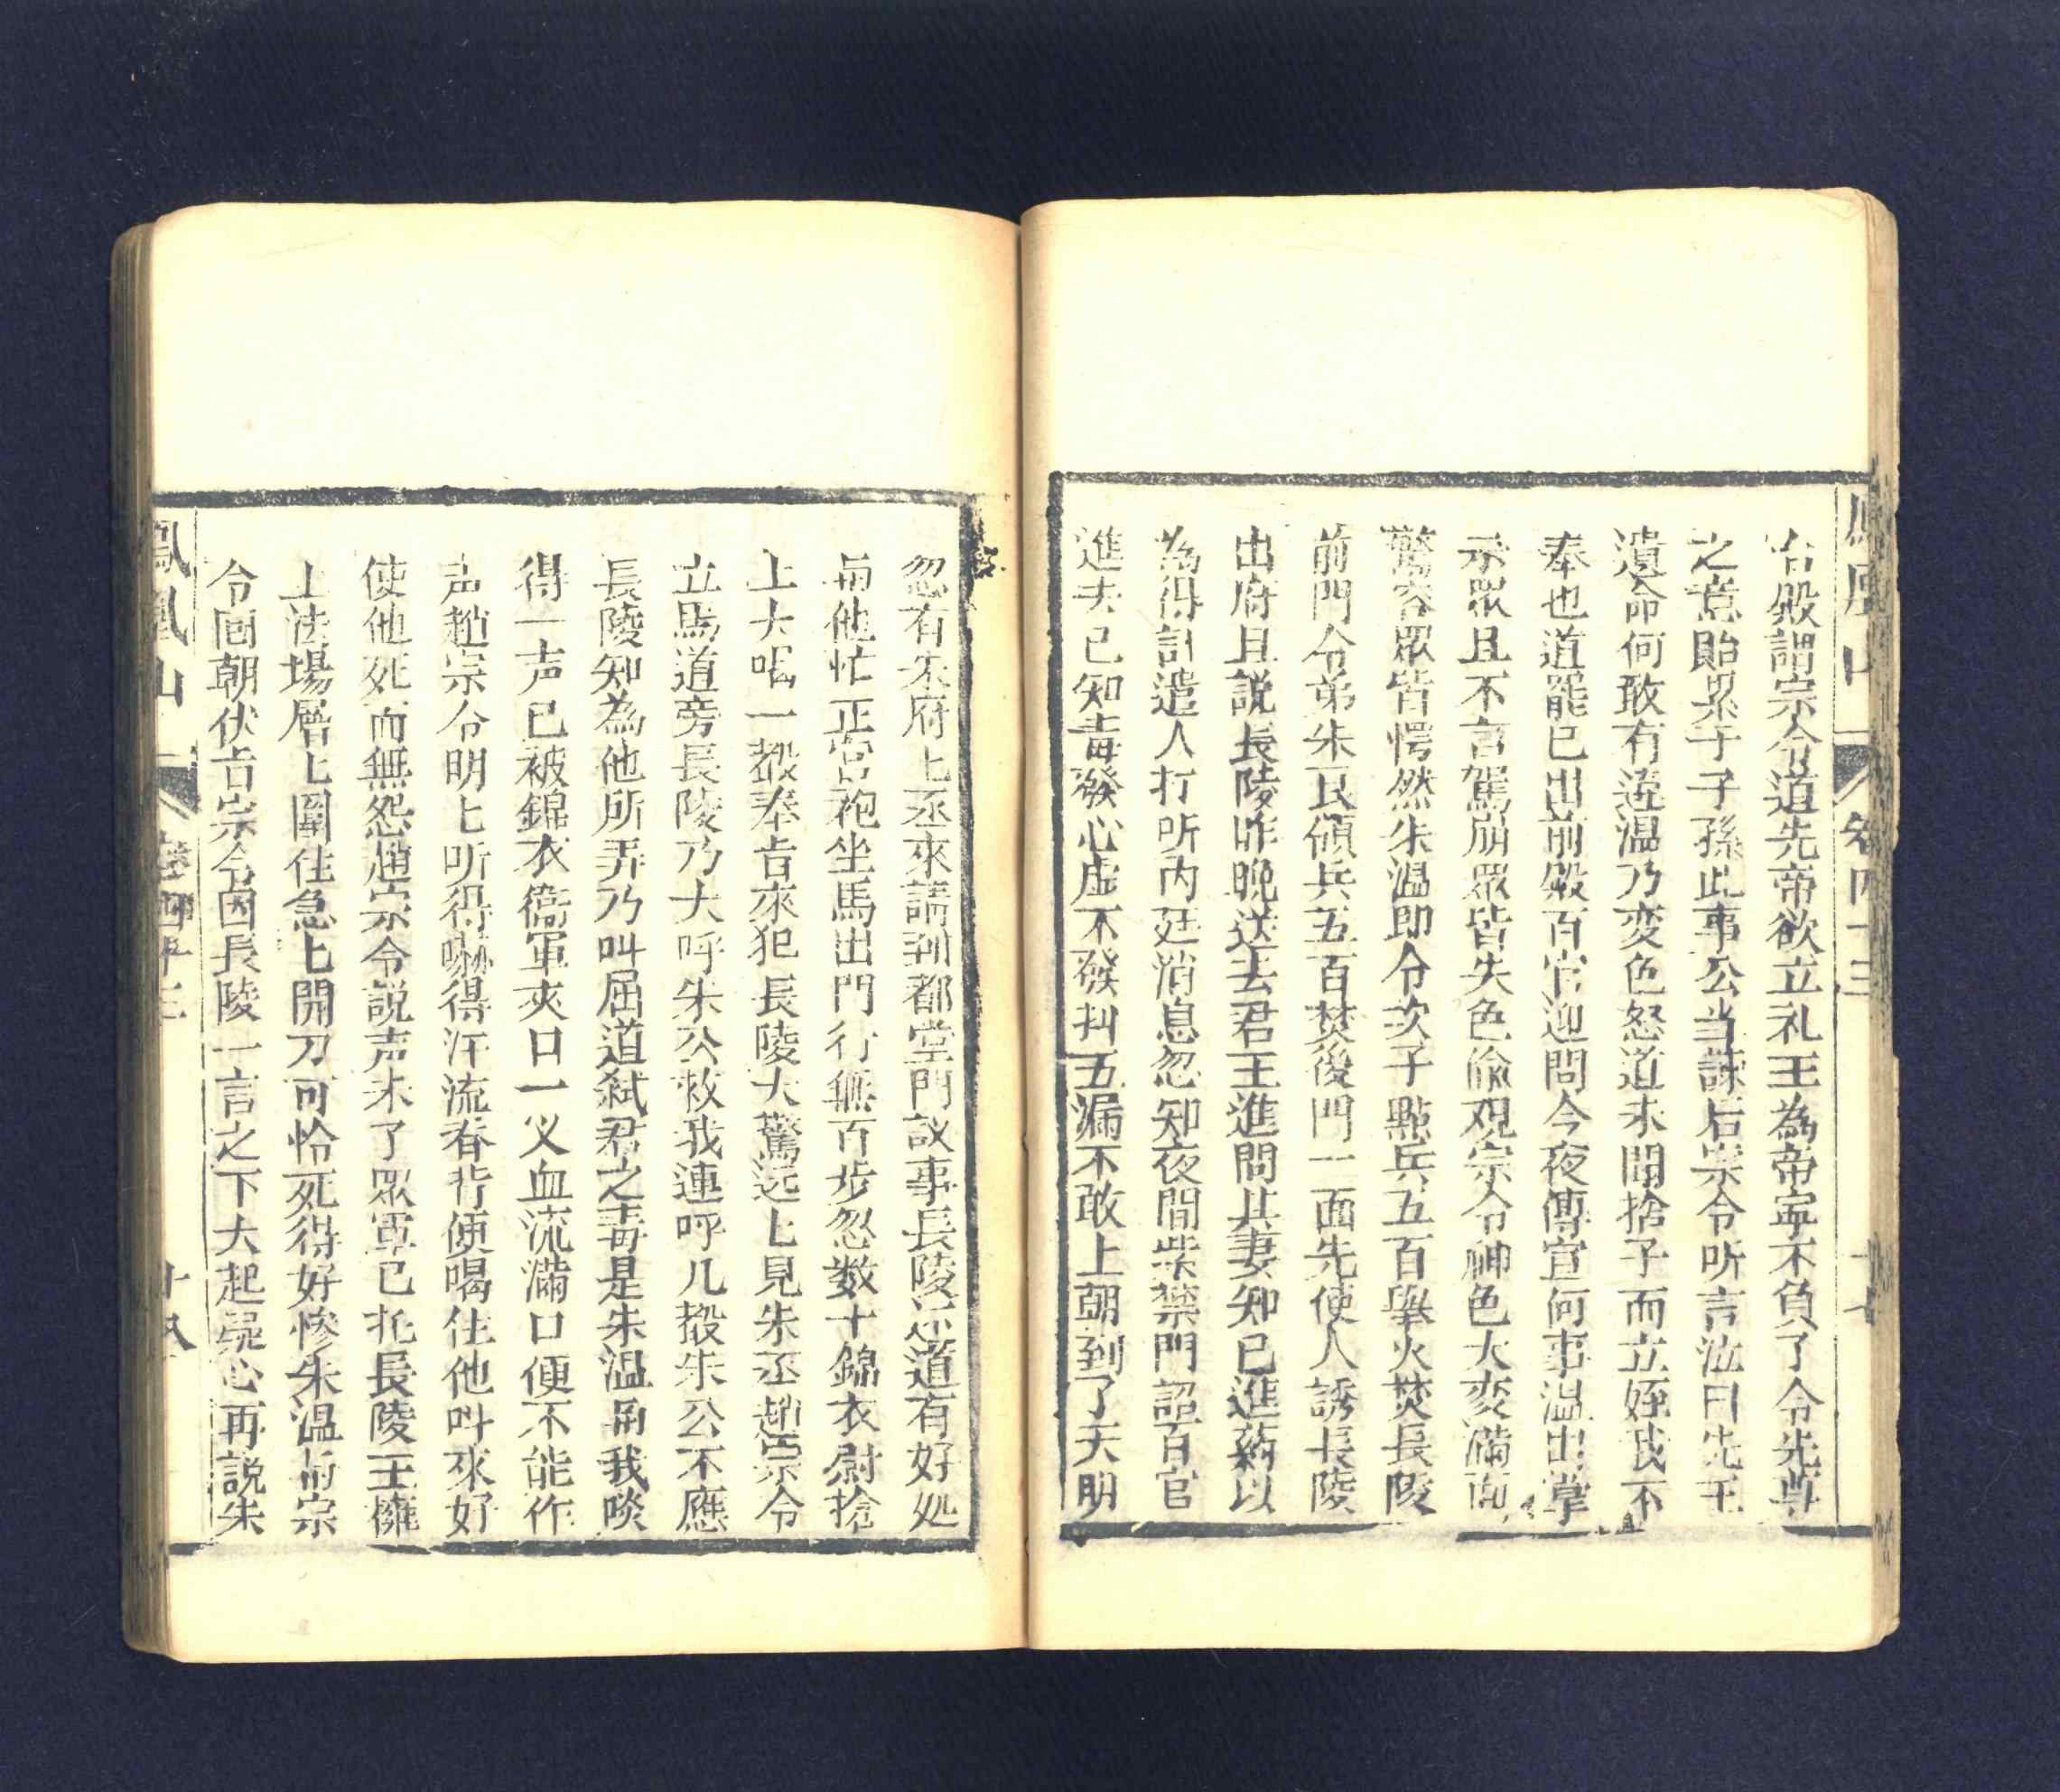 鳳凰山 卷四十三 十七
台殿謂宗令道先帝欲立礼王為帝寧不負了令先尊
之意貽累于子孫此事公当諫后宗令听言泣曰先王
遺命何敢有違温乃变色怒道未聞捨子而立姪我不
奉也道罷已出前殿百官迎問今夜傳宣何事温出掌
示眾且不言駕崩眾皆失色偷观宗令神色大变滿面
驚容眾皆愕然朱温即令次子點兵五百舉火焚長陵
前門令弟朱艮領兵五百焚後門一面先使人誘長陵
出府且説長陵昨晚送去君王進問其妻知已進葯以
為得計遣人打听内廷消息忽知夜間紫禁門詔百官
進去已知毒發心虛不發抖五漏不敢上朝到了天明
忽有朱府上丞來請到都堂門議事長陵还道有好処
與他忙正官袍坐馬出門行無百步忽数十錦衣尉搶
上大喝一声奉旨來犯長陵大驚远匕見朱丞趙宗令
立馬道旁長陵乃大呼朱公救我連呼几声朱公不應
長陵知為他所弄乃叫屈道弑君之毒是朱温與我啖
得一声已被錦衣衛軍夾口一义血流滿口便不能作
声趙宗令明匕听得嚇得汗流脊背便喝住他叫來好
使他死而無怨趙宗令説声未了眾軍已扥長陵王擁
上法場層匕圍住急匕開刀可怜死得好慘朱温與宗
令囬朝伏旨宗令因長陵一言之下大起疑心再説朱
鳳凰山 卷四十三 十八